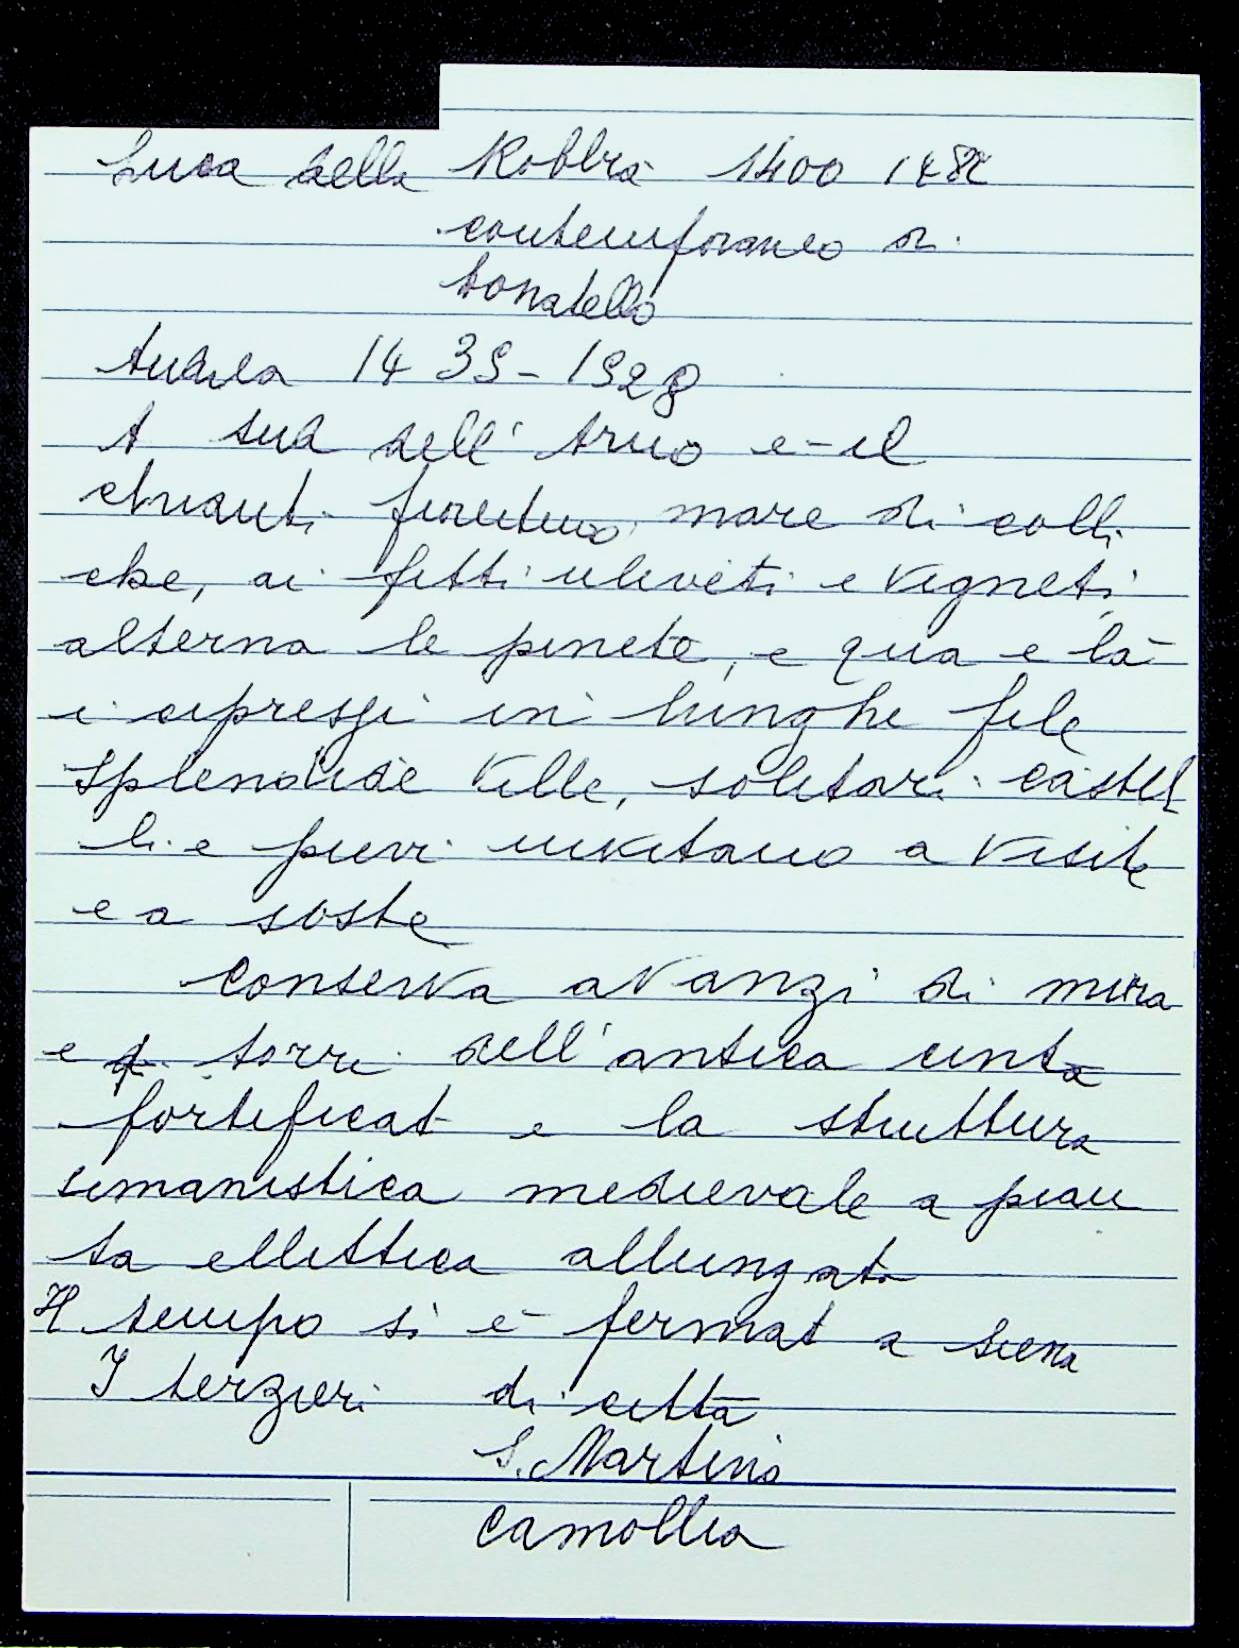 Luca della Robbia 1400 1482
contemporaneo di
Donatello
Andrea 1435-1528
A sud dell'Arno e-il
chianti fiorentino mare di colli
che, ai fitti uliveti e vigneti,
alterna le pinete, e qua e là
i cipressi in lunghe file
splendide ville, solitari castel
li e pievi invitano a visite
e a soste
conserva avanzi di mura
e torri dell'antica cinta
fortificat e la struttura
umanistica medievale a pian
ta ellittica allungata
Il tempo si è fermat a Siena
I terzieri di città
S. Martino
Camollia